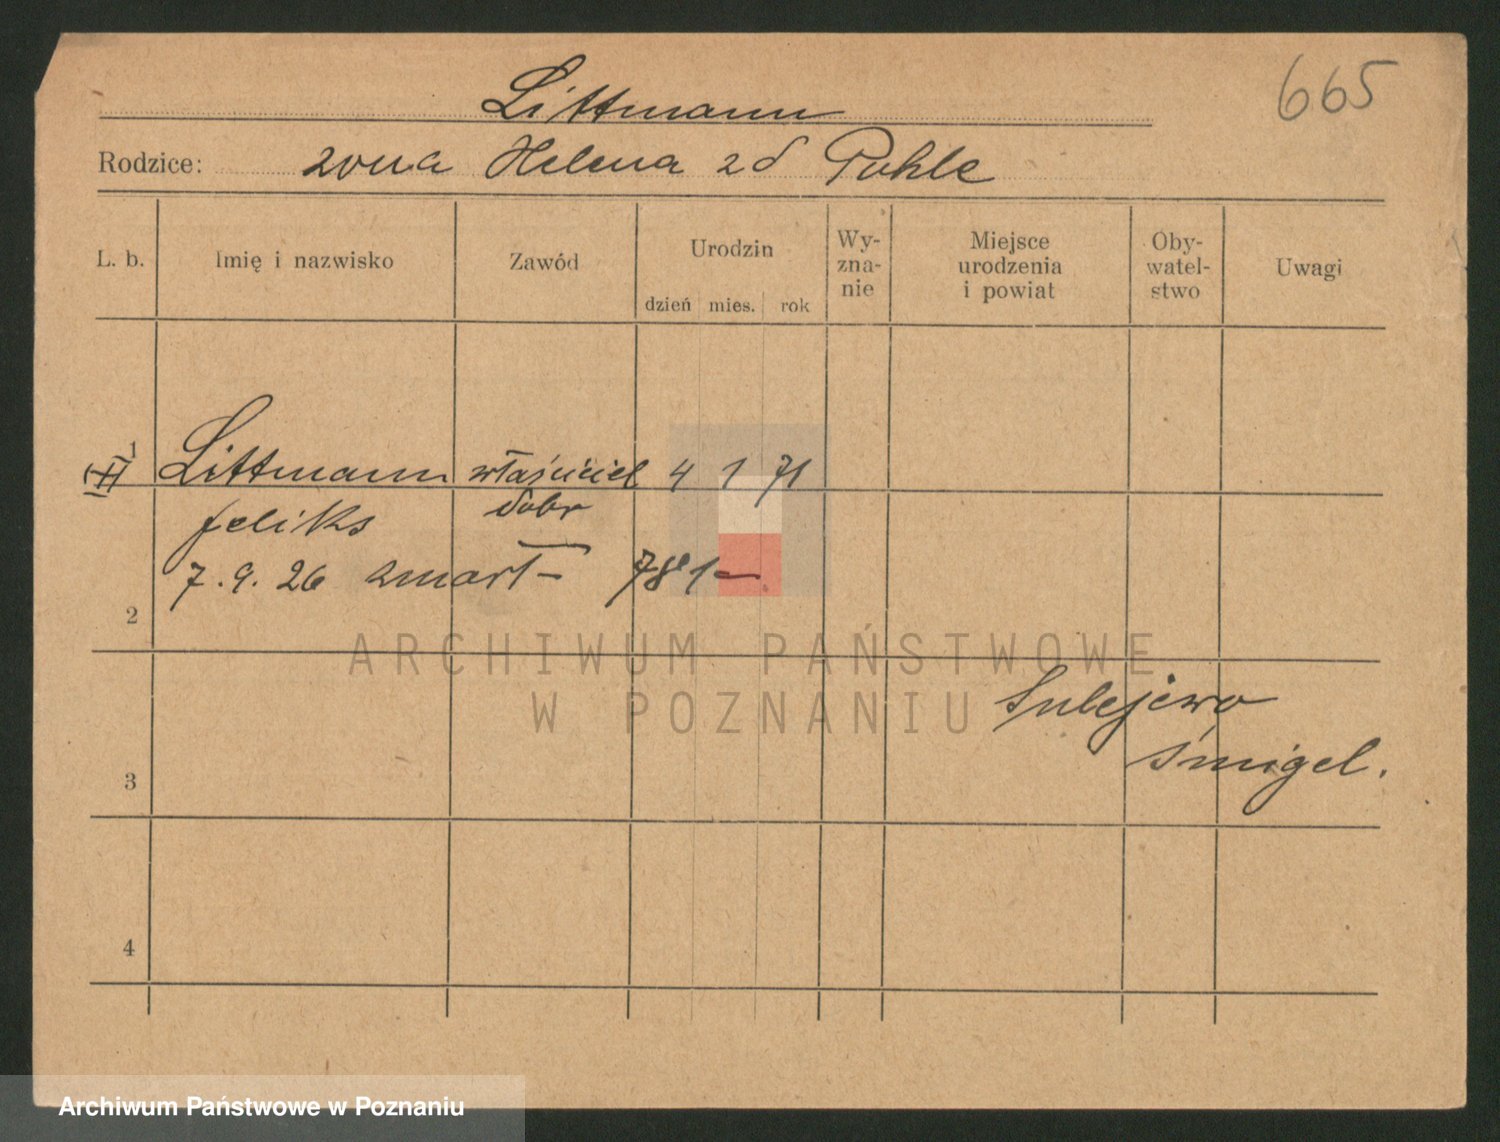 665
Littmann
Rodzice: żona Helena zd Pohle
L. b. Imię i nazwisko Zawód Urodzin Wy-zna-nie Miejsce urodzenia i powiat Oby-watel-stwo Uwagi
dzień mies. rok
1 Littmann właściciel 4 1 71
feliks dobr
7.9.26 zmarł – 781 –
2
ARCHIWUM PAŃSTWOWE
W POZNANIU
Sulejewo
śmigel.
3
4
Archiwum Państwowe w Poznaniu